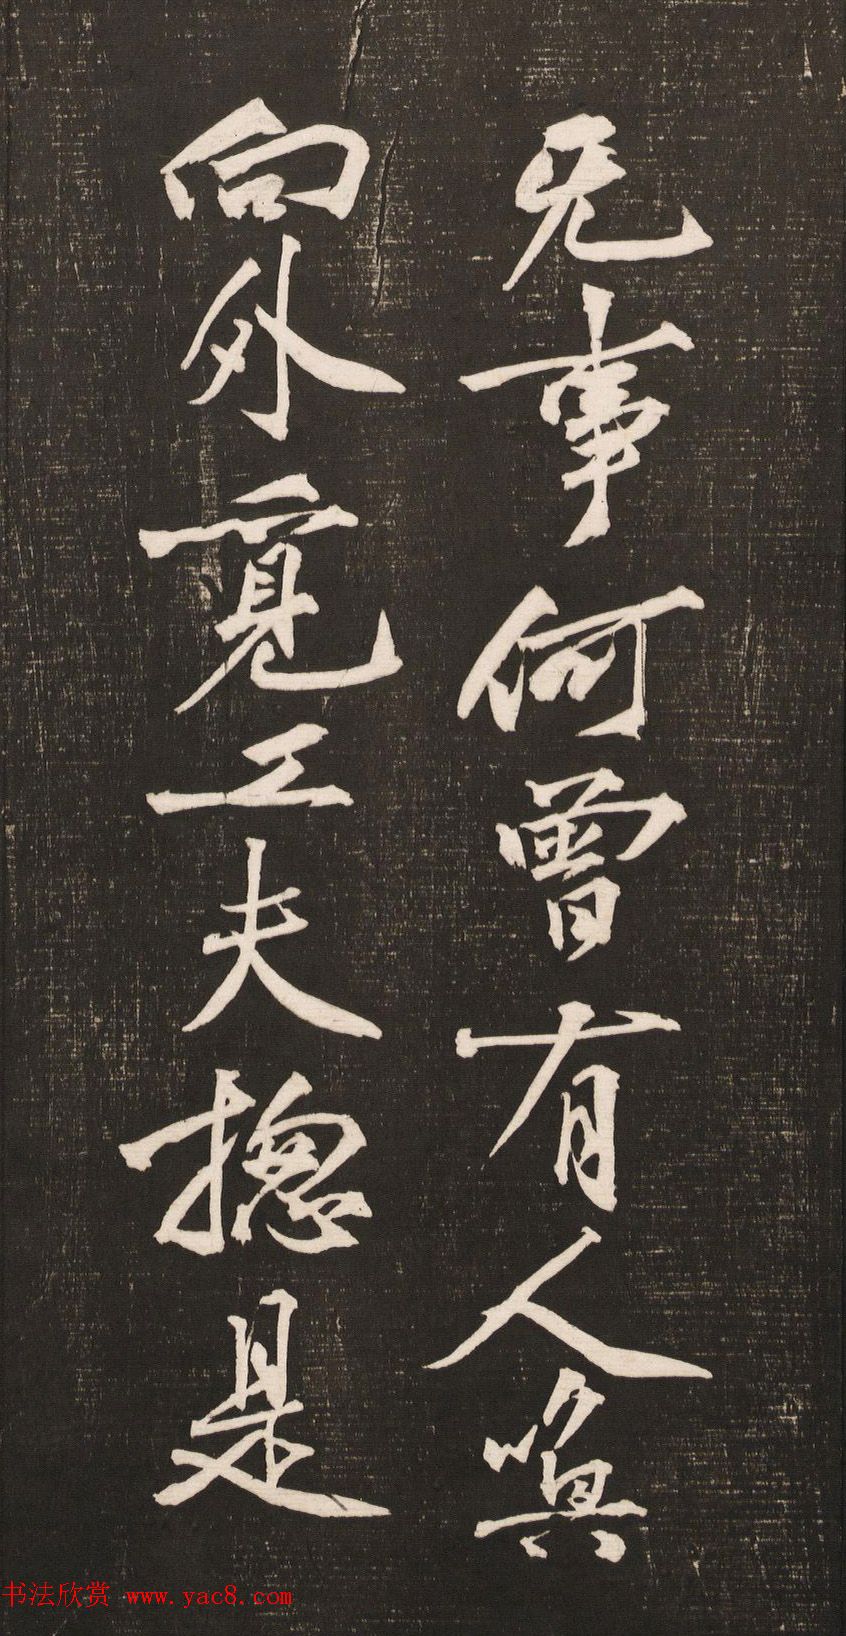 无事何曾有人嗔
向外覓工夫揔是
书法欣赏 www.yac8.com